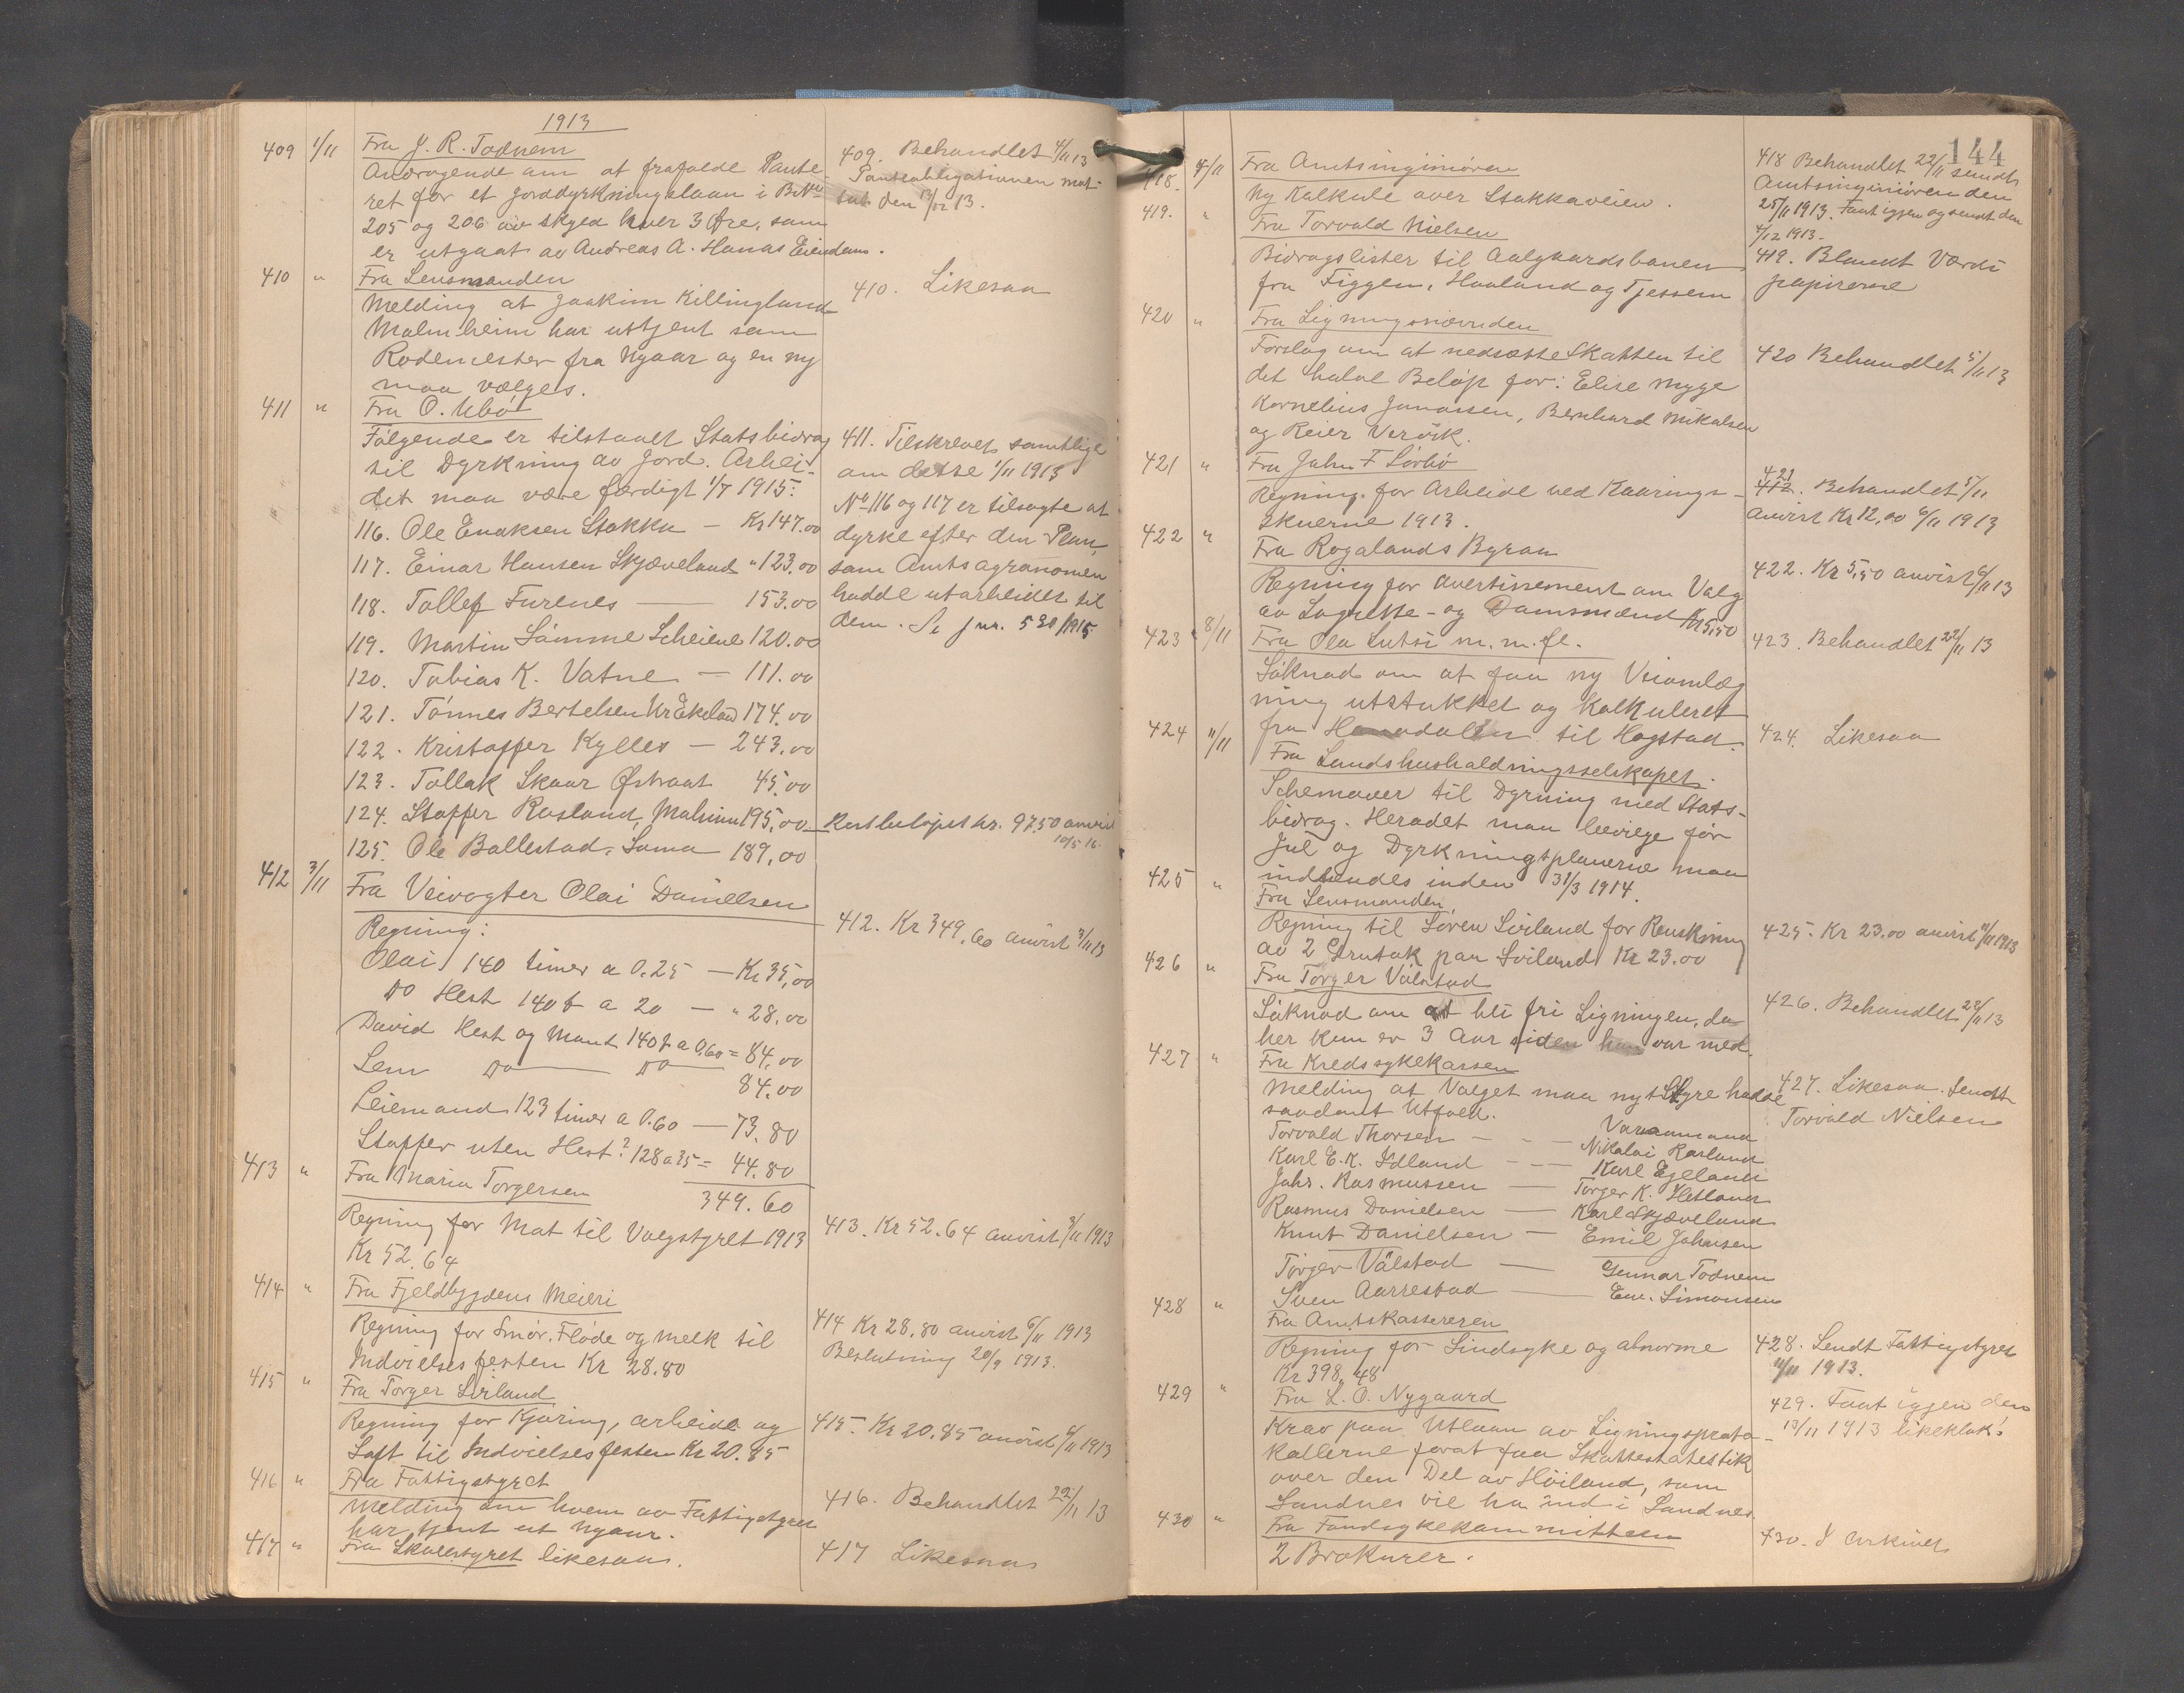 1913
409 1/11 Fra J. R. Todnem
Andragende om at frafalde Pante-
ret for et Jorddyrkningslaan i BrNr
205 og 206 av Skyld hver 3 Øre, som
er utgaat av Andreas A. Hanas Eiendom.
409. Behandlet 4/11 13
Panteobligationen mot-
tat den 13/12 13.
410 " Fra Lensmanden
Melding at Joakim Killingland
Malmheim har uttjent som
Rodemester fra Nyaar og en ny
maa vælges.
410. Likesaa
411 " Fra O. Ubø
Følgende er tilstaaet Statsbidrag
til Dyrkning av Jord. Arbei-
det maa være færdigt 1/7 1915:
116. Ole Enoksen Stokka — Kr 147.00
117. Einar Hansen Skjæveland " 123.00
118. Tollef Furenes — 153.00
119. Martin Sømme Scheiene 120.00
120. Tobias K. Vatne — 111.00
121. Tønnes Bertelsen Kr Ekeland 174.00
122. Kristoffer Kylles — 243.00
123. Tollak Skaar Østraat 45.00
124. Stoffer Rosland, Malmim 195,00
125. Ole Bollestad, Soma 189,00
411. Tilskrevet samtlige
om dette 1/11 1913
No 116 og 117 er tilsagte at
dyrke efter den Plan,
som Amtsagronomen
hadde utarbeidet til
dem. Se Jnr. 530/1915
Restbeløpet kr. 97,50 anvist
10/5 16.
412 3/11 Fra Veivogter Olai Danielsen
Regning:
Olai 140 timer a 0.25 — Kr 35,00
Do Hest 140 t a 20 — " 28,00
David Hest og Mand 140 t a 0,60 = 84,00
Sem Do — Do 84.00
Leiemand 123 timer a 0.60 — 73.80
Stoffer uten Hest? 128 a 35 = 44.80
349.60
412. Kr 349,60 anvist 3/11 13
413 " Fra Maria Torgersen
Regning for Mat til Valgstyret 1913
Kr 52.64
413. Kr 52.64 anvist 3/11 1913
414 " Fra Fjeldbygdens Meieri
Regning for Smør, Fløde og Melk til
Indvielsesfesten Kr 28.80
414 Kr 28.80 anvist 6/11 1913
Beslutning 20/9 1913.
415 " Fra Torger Sviland
Regning for Kjøring, arbeide og
Saft til Indvielsesfesten Kr 20.85
415. Kr 20.85 anvist 6/11 1913
416 " Fra Fattigstyret
Melding om hvem av Fattigstyret
har tjent ut Nyaar.
416. Behandlet 22/11 13
417 " Fra Skolestyret likesaa.
417 Likesaa
144
418. 4/11 Fra Amtsingeniøren
Ny Kalkule over Stokkaveien.
418 Behandlet 22/11 sendt
Amtsingeniøren den
25/11 1913. Fant igjen og sendt den
4/12 1913.
419. " Fra Torvald Nielsen
Bidragslister til Aalgaardsbanen
fra Figgen, Hoaland og Tjessem
419. Blandt Værdi
papirerne
420 " Fra Ligningsnævnden
Forslag om at nedsætte Skatten til
det halve Beløp for: Elise Myge
Kornelius Jonassen, Bernhard Mikalsen
og Reier Vervik.
420 Behandlet 5/11 13
421 " Fra John F Sørbø
Regning for Arbeide ved Kaarings-
Skuerne 1913.
421. Behandlet 5/11
anvist Kr 12,00 6/11 1913
422 " Fra Rogalands Byraa
Regning for Avertissement om Valg
av Lagrette- og Domsmænd Kr 5,50
422. Kr 5,50 anvist 6/11 13
423 8/11 Fra Ola Lutsi m. m. fl.
Søknad om at faa ny Veiomlæg
ning utstukket og kalkuleret
fra til Hogstad.
423. Behandlet 22/11 13
424 11/11 Fra Landshusholdningsselskapet.
Schemaer til Dyrning med Stats-
bidrag. Heradet maa bevilge før
Jul og Dyrkningsplanerne maa
indsendes inden 31/3 1914.
424. Likesaa
425 " Fra Lensmanden.
Regning til Søren Sviland for Renskning
av 2 Grutak paa Sviland Kr 23.00
425. Kr 23.00 anvist 11/11 1913
426 " Fra Torger Vølstad
Søknad om at bli fri Ligningen, da
her kun er 3 Aar siden han var med.
426. Behandlet 22/11 13
427 " Fra Kredssykekassen
Melding at Valget maa nyt Styre hadde
saadant Utfald.
Varaamand
Torvald Thorsen — Nikolai Rosland
Karl E. K. Idland — Karl Egeland
Johs. Rasmussen — Torger K. Hetland
Rasmus Danielsen — Karl Skjæveland
Knut Danielsen — Emil Johnsen
Torger Vølstad — Gunnar Todnem
Sven Aarrestad — Em. Simonsen
427. Likesaa. Sendt
Torvald Nielsen
428 " Fra Amtskassereren
Regning for Sindsyke og abnorme
Kr 398,48
428. Sendt Fattigstyret
11/11 1913.
429 " Fra L. O. Nygaard
Krav paa Utlaan av Ligningsproto-
kollerne forat faa Skattestatestik
over den Del av Høiland, som
Sandnes vil ha ind i Sandnes.
429. Fant igjen den
13/11 1913
430 " Fra Fondsykekommitteen
2 Brokurer.
430. I Arkivet